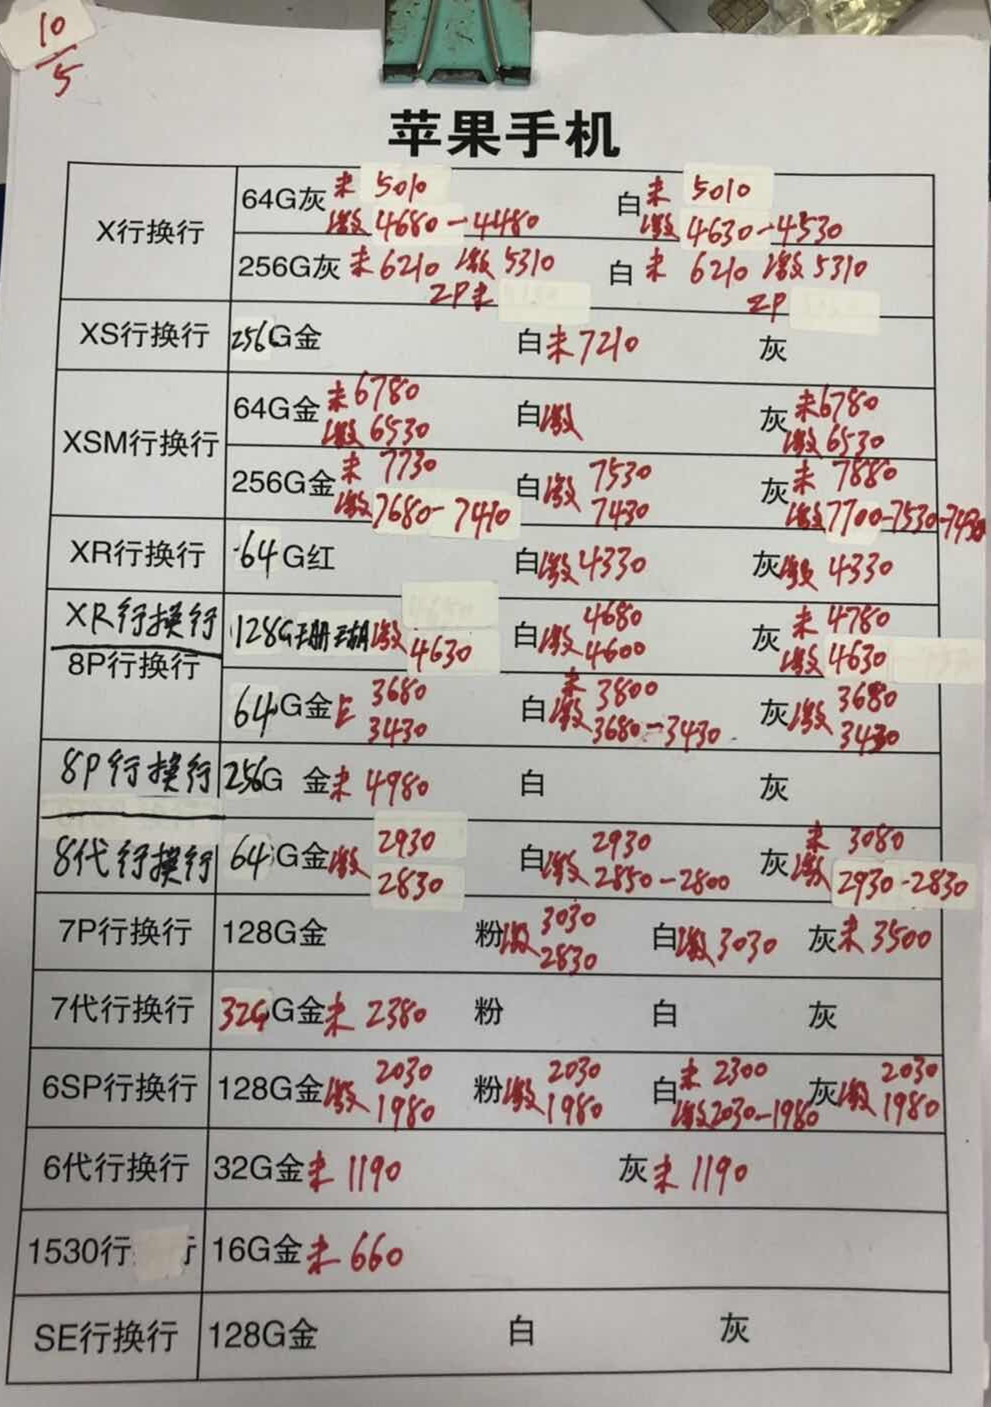 10/5
苹果手机
X行换行 64G灰 未 5010 白 未 5010
激 4680-4480 激 4630-4530
256G灰 未 6210 激 5310 白 未 6210 激 5310
ZP未 ZP
XS行换行 256G金 白 未 7210 灰
XSM行换行 64G金 未 6780 白 激 灰 未 6780
激 6530 激 6530
256G金 未 7730 白 激 7530 灰 未 7880
激 7680-7410 7430 激 7700-7530-7430
XR行换行 64G红 白 激 4330 灰 激 4330
XR行换行 128G珊瑚 激 4630 白 激 4680 灰 未 4780
4600 激 4630
8P行换行
64G金 3680 白 未 3800 灰 激 3680
3430 激 3680-3430 3430
8P行换行 256G 金 未 4980 白 灰
8代行换行 64G金 激 2930 白 激 2930 灰 未 3080
2830 2850-2800 激 2930-2830
7P行换行 128G金 粉 激 3030 白 激 3030 灰 未 3500
2830
7代行换行 32G G金 未 2380 粉 白 灰
6SP行换行 128G金 激 2030 粉 激 2030 白 未 2300 灰 激 2030
1980 1980 激 2030-1980 1980
6代行换行 32G金 未 1190 灰 未 1190
1530行 行 16G金 未 660
SE行换行 128G金 白 灰